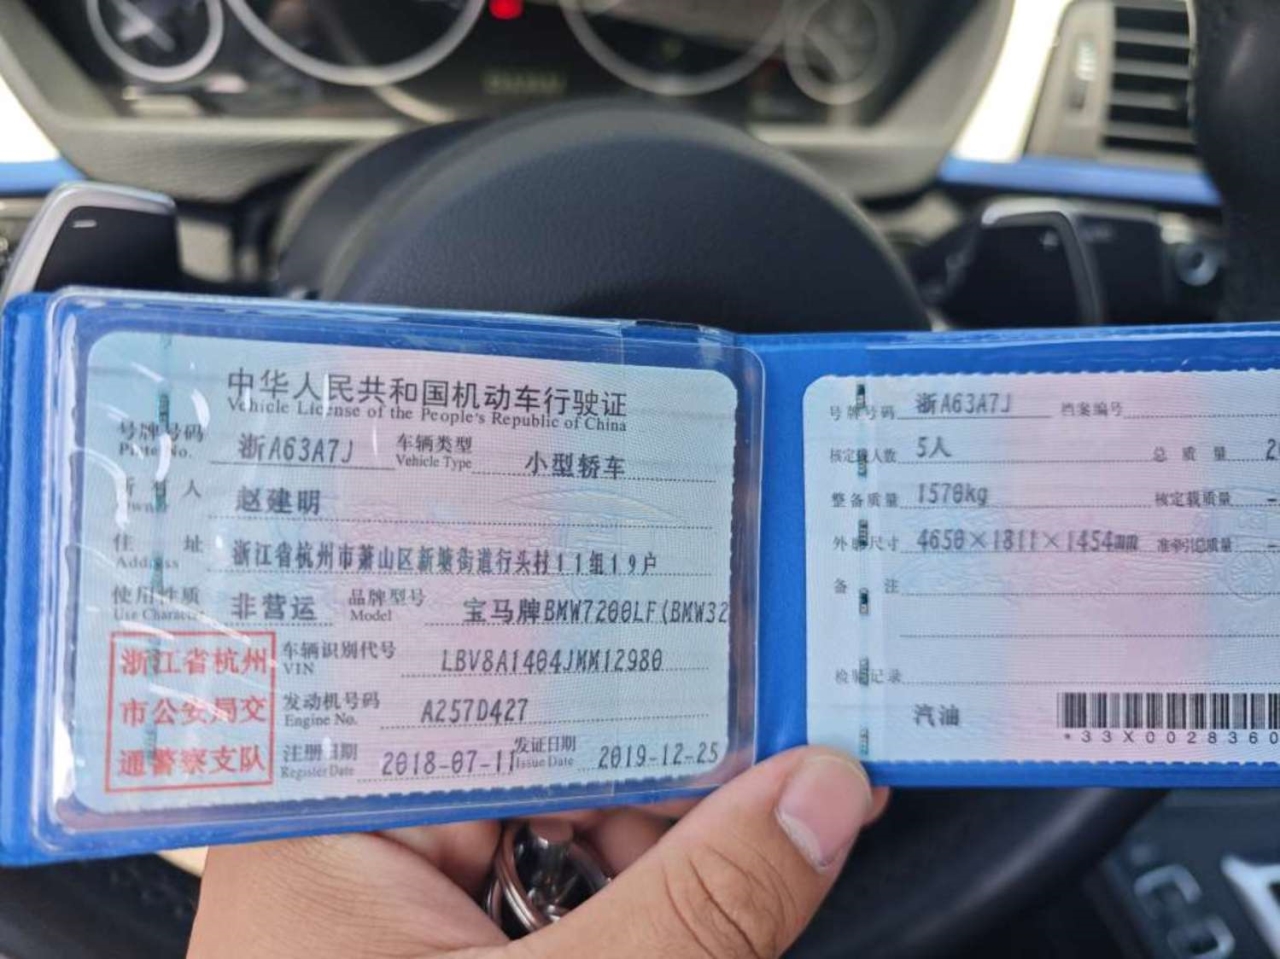 中华人民共和国机动车行驶证
Vehicle License of the People's Republic of China
号牌号码 浙A63A7J 车辆类型 小型轿车
Plate No. Vehicle Type
所有人 赵建明
Owner
住址 浙江省杭州市萧山区新塘街道行头村11组19户
Address
使用性质 非营运 品牌型号 宝马牌BMW7200LF(BMW32
Use Character Model
浙江省杭州
市公安局交
通警察支队
车辆识别代号 LBV8A1404JMM12980
VIN
发动机号码 A257D427
Engine No.
注册日期 2018-07-11 发证日期 2019-12-25
Register Date Issue Date
号牌号码 浙A63A7J 档案编号
核定载人数 5人 总质量 2
整备质量 1570kg 核定载质量 -
外廓尺寸 4650×1811×1454mm 准牵引总质量 -
备注
检验记录
汽油
*33X0028360